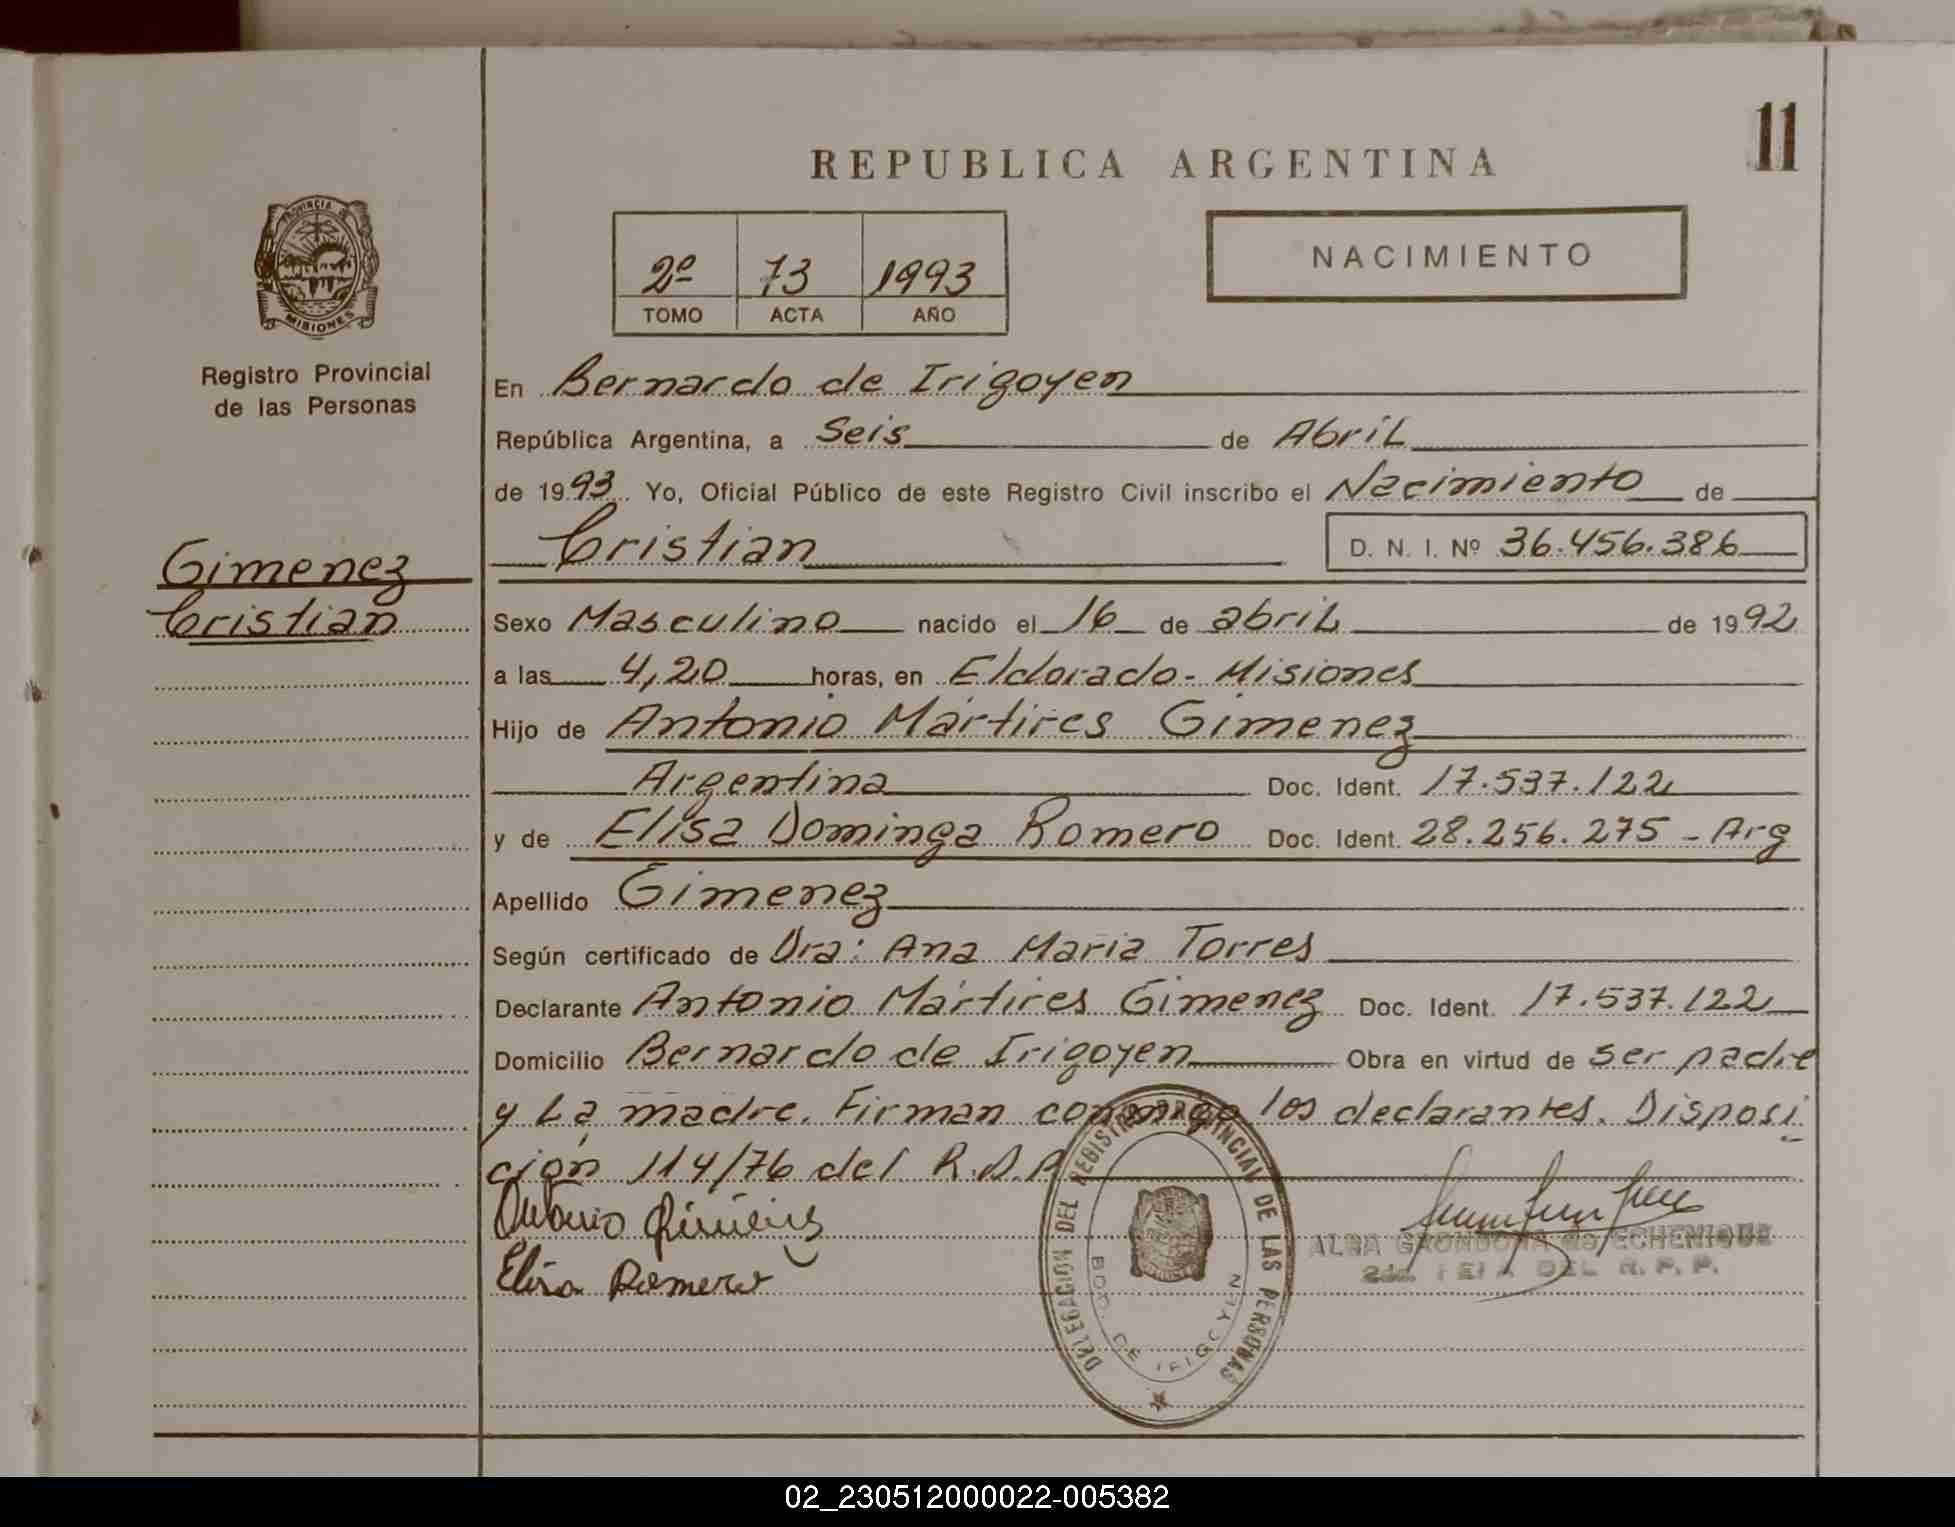 11
REPUBLICA ARGENTINA
2º 73 1993
TOMO ACTA AÑO
NACIMIENTO
PROVINCIA DE
MISIONES
Registro Provincial
de las Personas
Gimenez
Cristian
En Bernardo de Irigoyen
República Argentina, a Seis de Abril
de 1993 Yo, Oficial Público de este Registro Civil inscribo el Nacimiento de
Cristian D. N. I. Nº 36.456.386
Sexo Masculino nacido el 16 de abril de 1992
a las 4,20 horas, en Eldorado - Misiones
Hijo de Antonio Mártires Gimenez
Argentina Doc. Ident. 17.537.122
y de Elisa Dominga Romero Doc. Ident. 28.256.275 - Arg
Apellido Gimenez
Según certificado de Dra: Ana Maria Torres
Declarante Antonio Mártires Gimenez Doc. Ident. 17.537.122
Domicilio Bernardo de Irigoyen Obra en virtud de ser padre
y La madre. Firman conmigo los declarantes. Disposi
ción 114/76 del R.D.P
Antonio Gimenez
Elisa Romero
DELEGACION DEL REGISTRO PROVINCIAL DE LAS PERSONAS
BDO. DE IRIGOYEN
ALBA GRONDONA de ECHENIQUE
DEL R. P. P.
02_230512000022-005382